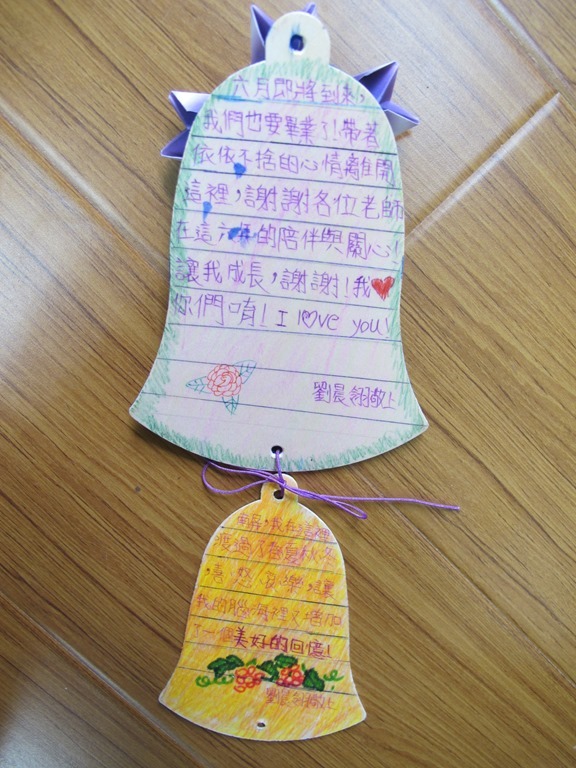 六月即將到來,
我們也要畢業了!帶著
依依不捨的心情離開
這裡,謝謝各位老師
在這六年的陪伴與關心!
讓我成長,謝謝!我♥
你們唷! I l♡ve you!
劉晨翎敬上
我在這裡
渡過了春夏秋冬
,喜怒哀樂,讓
我的腦海裡又增加
了一個美好的回憶!
劉晨翎敬上